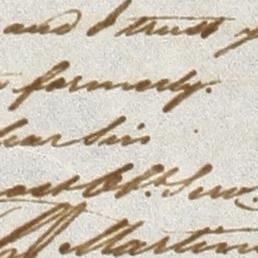 and I trust
formerly.
Dear Sir
most Obt. Serv.
Martin